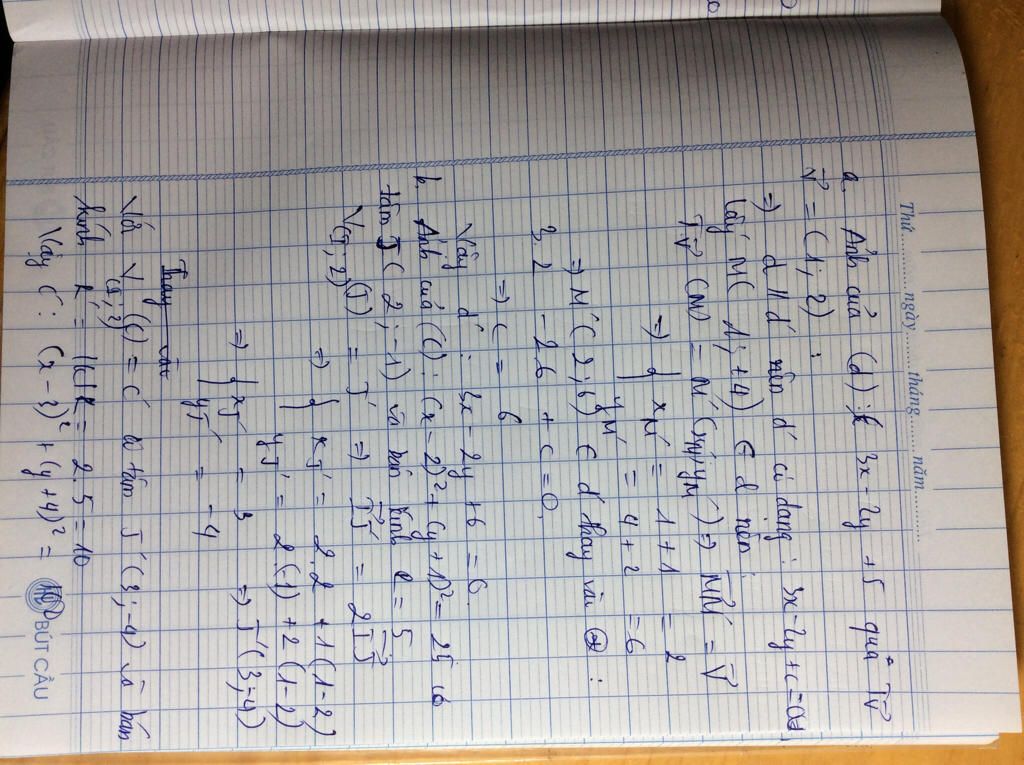 Thứ ............ ngày ............ tháng ............ năm ............
a. Ảnh của (d): 3x - 2y + 5 qua T v⃗
v⃗ = (1; 2) :
=> d // d' nên d' có dạng : 3x - 2y + c = 0
Lấy M( 1; +4) ∈ d nên
T v⃗ (M) = M'(xM'; yM') => MM'⃗ = v⃗
=> { xM' = 1 + 1 = 2
yM' = 4 + 2 = 6
=> M'( 2; 6) ∈ d' thay vào :
3. 2 - 2.6 + c = 0
=> c = 6
Vậy d' : 3x - 2y + 6 = 0.
b. Ảnh của (C) : (x - 2)² + (y + 1)² = 25 có
tâm J( 2; -1) và bán kính R = 5
V(I; 2)(J) = J' => IJ'⃗ = 2IJ⃗
=> { xJ' = 2.2 + 1(1-2)
yJ' = 2.(-1) + 2(1-2)
=> { xJ' = 3
yJ' = -4 => J'(3; -4)
Thay vào
Với V(I; 2) (C) = C' có tâm J'(3; -4) và bán
kính R' = |k|R = 2.5 = 10
Vậy C' : (x - 3)² + (y + 4)² = 100
BÚT CẦU